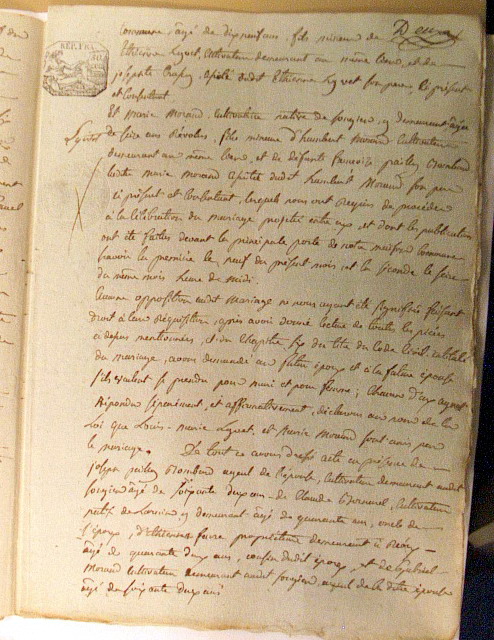 Deux
REP. FRA.
commune, âgé de dix neuf ans, fils mineur de
Ethienne Lyvet, Cultivateur demeurant au même lieu, et de
josephte Chapuy, assisté dudit Ethienne Lyvet son père, ici présent
et Consentant.
Et Marie Morand, cultivatrice native de Songieu, y demeurant, âgée
de seize ans Révolus, fille mineure d'humbert Morand Cultivateur
demeurant au même lieu, et de défunte françoise
ladite Marie Morand assistée dudit humbert Morand son père
ci présent et Consentant, lesquels nous ont Requis de procéder
à la Célébration du mariage projetté entre eux, et dont les publications
ont été faites devant la principale porte de notre maison Commune
savoir la première le neuf du présent mois, et la seconde le seize
du même mois heure de midi.
Aucune opposition audit Mariage ne nous ayant été signifiée faisant
droit à leur Réquisition, après avoir donné lecture de toutes les pièces
ci dessus mentionnées, et du Chapitre six du titre du Code Civil intitulé
du mariage, avons demandé au futur époux et à la future épouse
s'ils veulent se prendre pour mari et pour femme; Chacun d'eux ayant
Répondu séparément, et affirmativement, déclarons au nom de la
Loi que Louis-Marie Lyvet, et Marie Morand sont unis par
le mariage. De tout ce avons dressé acte en présence de
joseph ayeul de l'épouse, Cultivateur demeurant audit
songieu âgé de soixante deux ans, de Claude Cultivateur
natif de y demeurant âgé de quarante ans, oncle de
l'époux, d'Ethienne propriétaire demeurant à
âgé de quarante deux ans, cousin dudit époux, et de Gabriel
Morand Cultivateur demeurant audit songieu, ayeul de la dite épouse
âgé de soixante dix ans